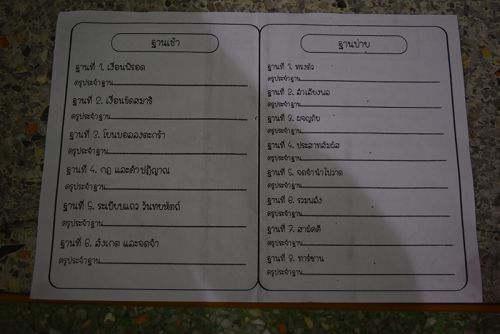 ฐานเช้า
ฐานที่ 1. เงื่อนพิรอด
ครูประจำฐาน
ฐานที่ 2. เงื่อนขัดสมาธิ
ครูประจำฐาน
ฐานที่ 3. โยนบอลลงตะกร้า
ครูประจำฐาน
ฐานที่ 4. กฎ และคำปฏิญาณ
ครูประจำฐาน
ฐานที่ 5. ระเบียบแถว วันทยหัตถ์
ครูประจำฐาน
ฐานที่ 6. สังเกต และจดจำ
ครูประจำฐาน
ฐานบ่าย
ฐานที่ 1. ทรงตัว
ครูประจำฐาน
ฐานที่ 2. ลำเลียงพล
ครูประจำฐาน
ฐานที่ 3. ผจญภัย
ครูประจำฐาน
ฐานที่ 4. ประสาทสัมผัส
ครูประจำฐาน
ฐานที่ 5. จดจำนำไปวาด
ครูประจำฐาน
ฐานที่ 6. รวมพลัง
ครูประจำฐาน
ฐานที่ 7. สามัคคี
ครูประจำฐาน
ฐานที่ 8. ทาร์ซาน
ครูประจำฐาน